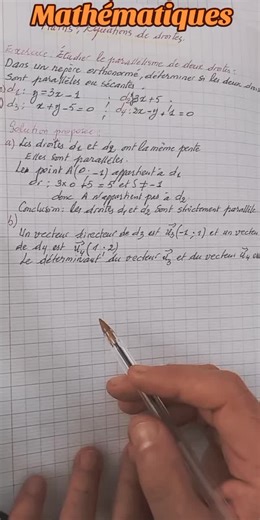 Mathématiques
Maths ; Equations de droites.
Exercice : Étudier le parallélisme de deux droites.
Dans un repère orthonormé, déterminer si les deux droites
sont parallèles ou sécantes.
d1 : y=3x-1 ; d2 3x+5.
d3 : x+y-5=0 ; d4 : 2x-y+1=0
Solution proposée :
a) Les droites d1 et d2 ont la même pente
Elles sont parallèles.
Les point A(0; -1) appartient à d1
or : 3x0+5 = 5 et 5 ≠ -1
donc A n'appartient pas à d2
Conclusion : les droites d1 et d2 sont strictement parallèles
b)
Un vecteur directeur de d3 est u3(-1 ; 1) et un vecteur
de d4 est u4(1 ; 2)
Le déterminant du vecteur u3 et du vecteur u4